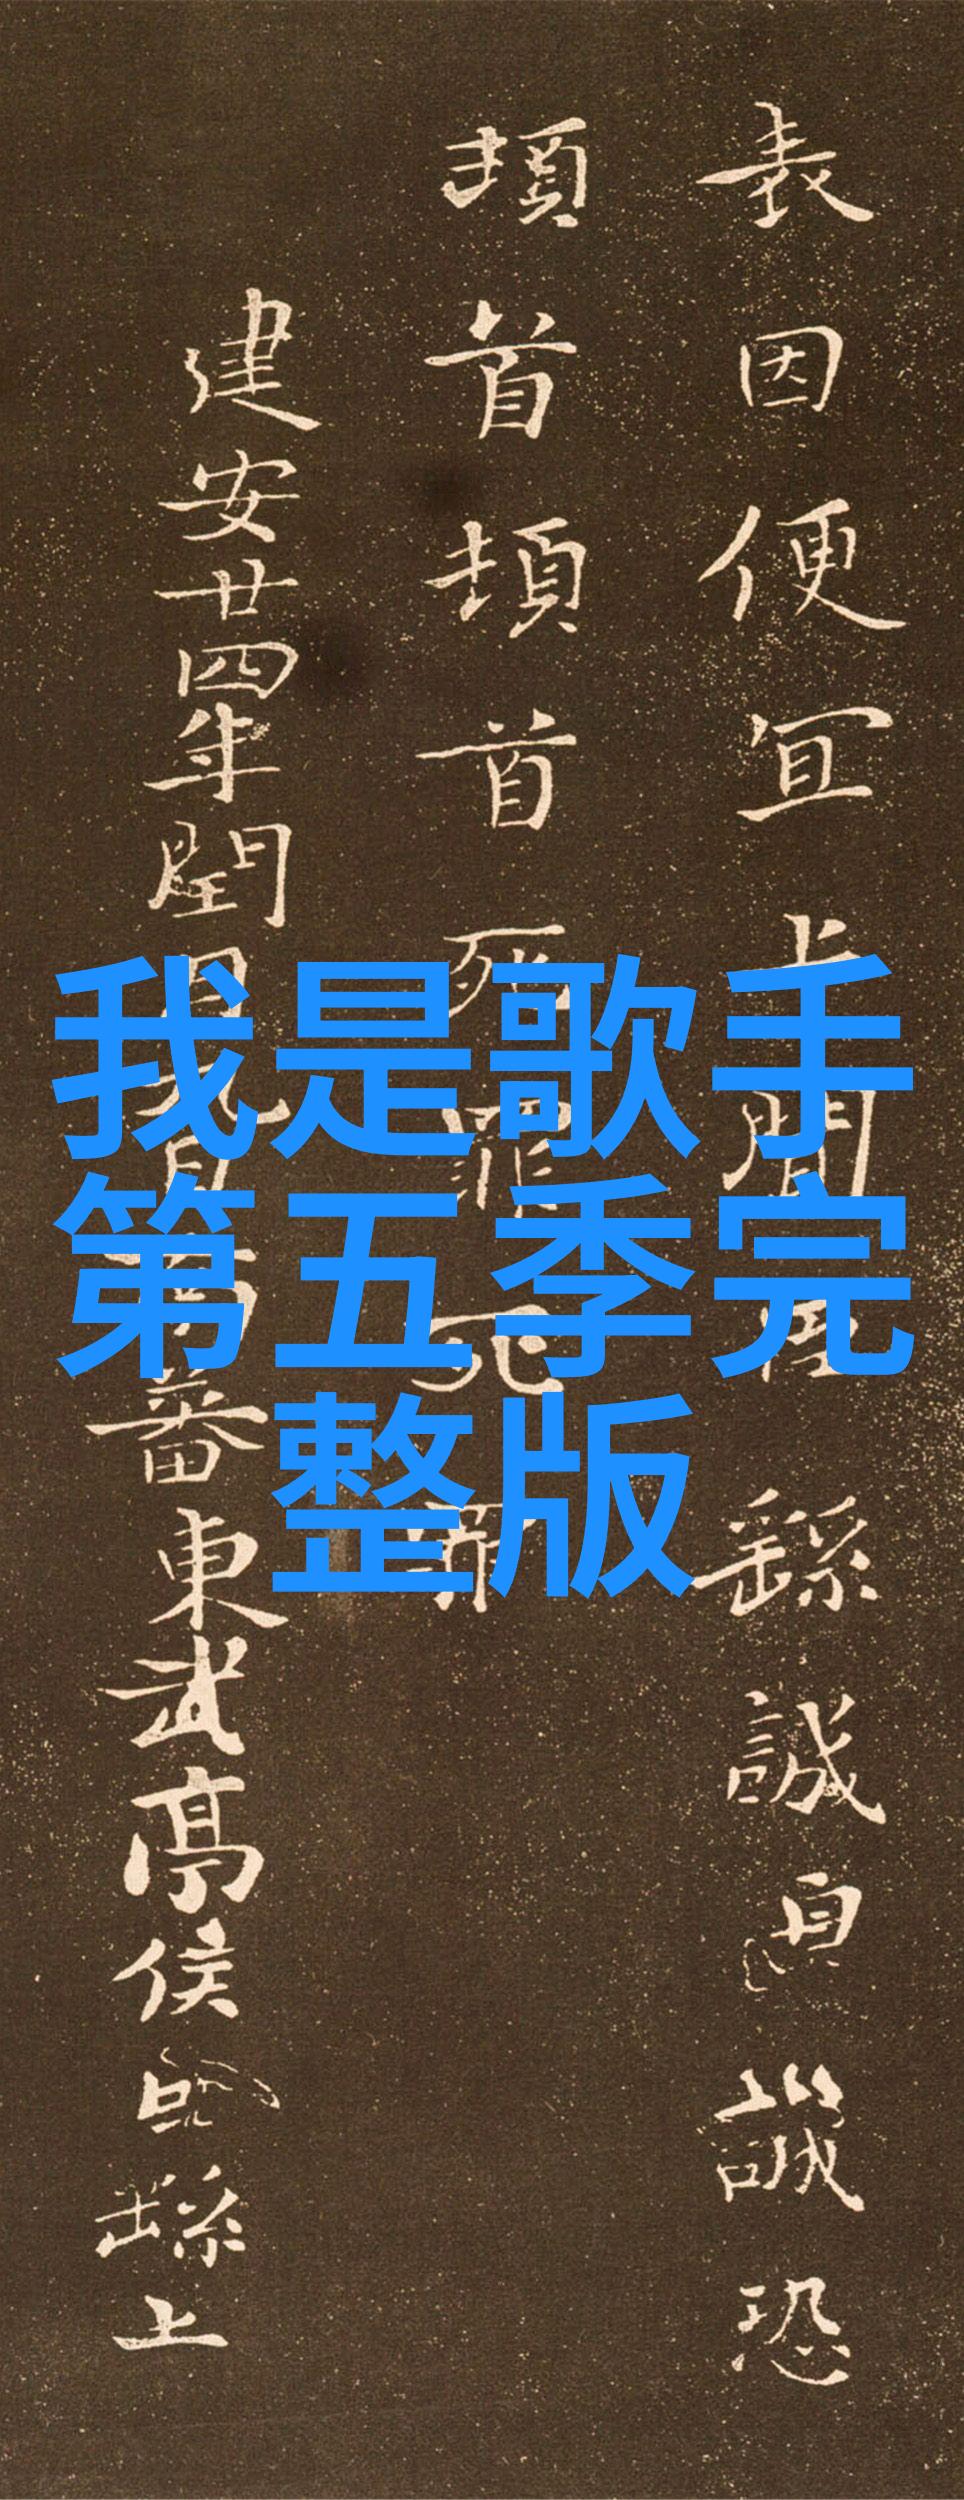 表因便宜上聞臣繇誠誠恐
頓首頓首死罪死罪
建安廿四年閏月九日南蕃東武亭侯繇上
我是歌手
第五季完
整版